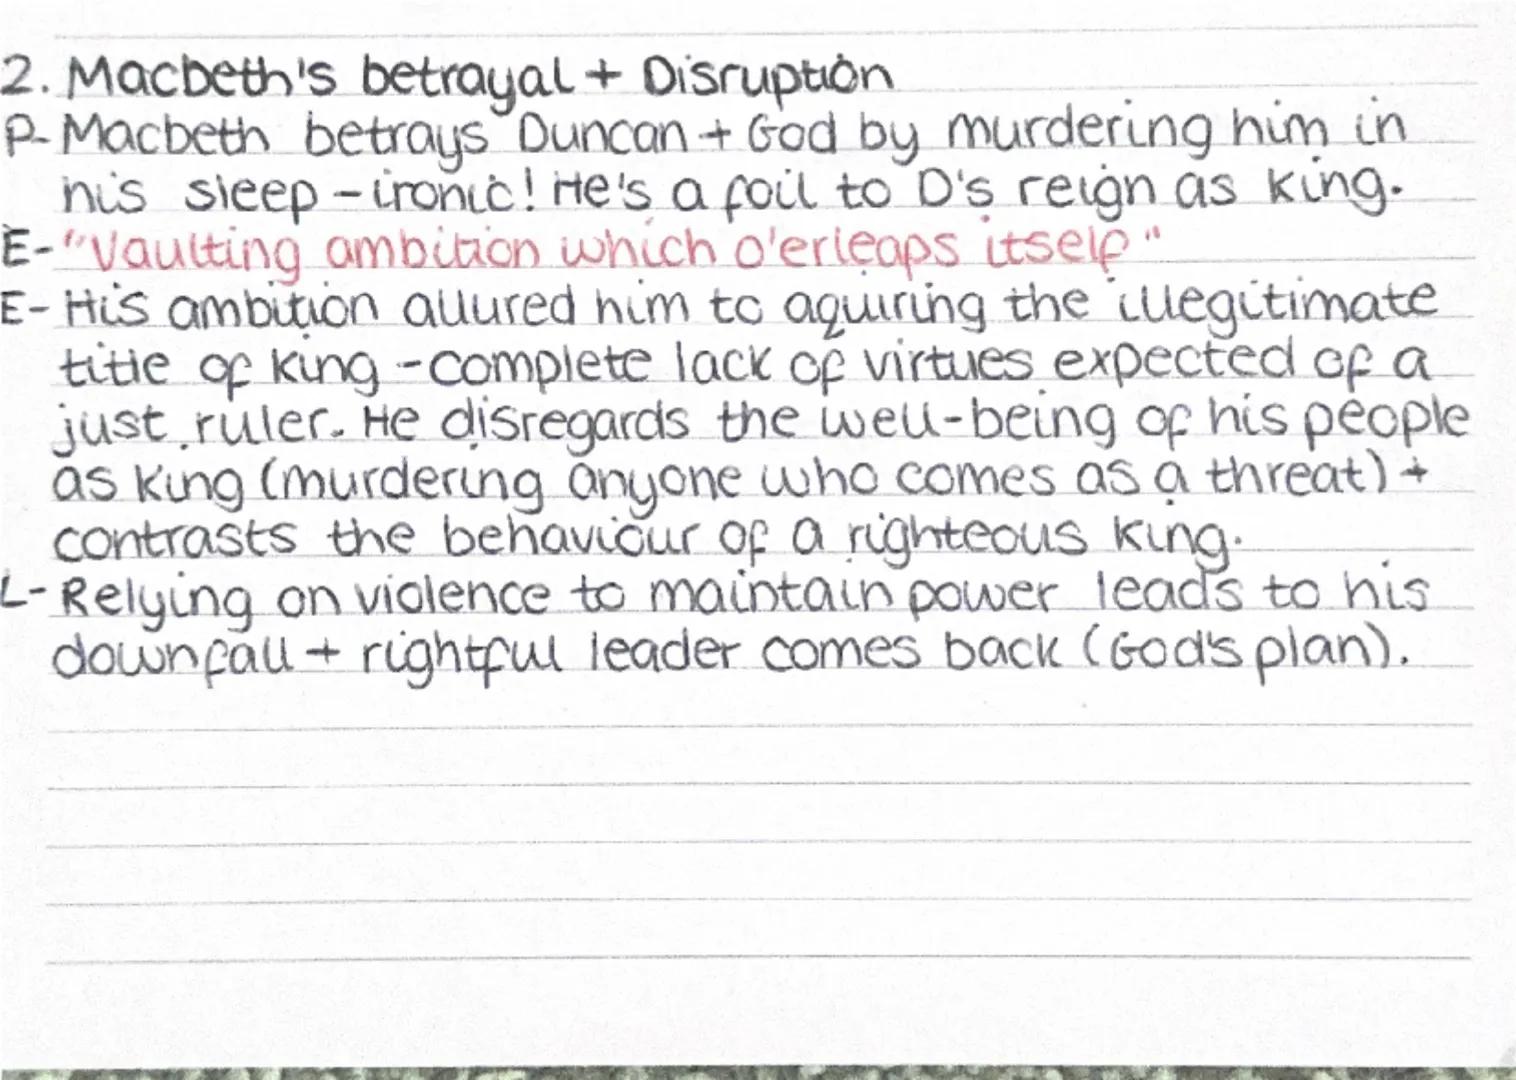 2. Macbeth's betrayal + Disruption
P- Macbeth betrays Duncan + God by murdering him in
his sleep - ironic! He's a foil to D's reign as King.
E- "Vaulting ambition which o'erleaps itself"
E- His ambition allured him to aquiring the illegitimate
title of King - complete lack of virtues expected of a
just ruler. He disregards the well-being of his people
as King (murdering anyone who comes as a threat) +
contrasts the behaviour of a righteous King.
L- Relying on violence to maintain power leads to his
downfall + rightful leader comes back (God's plan).